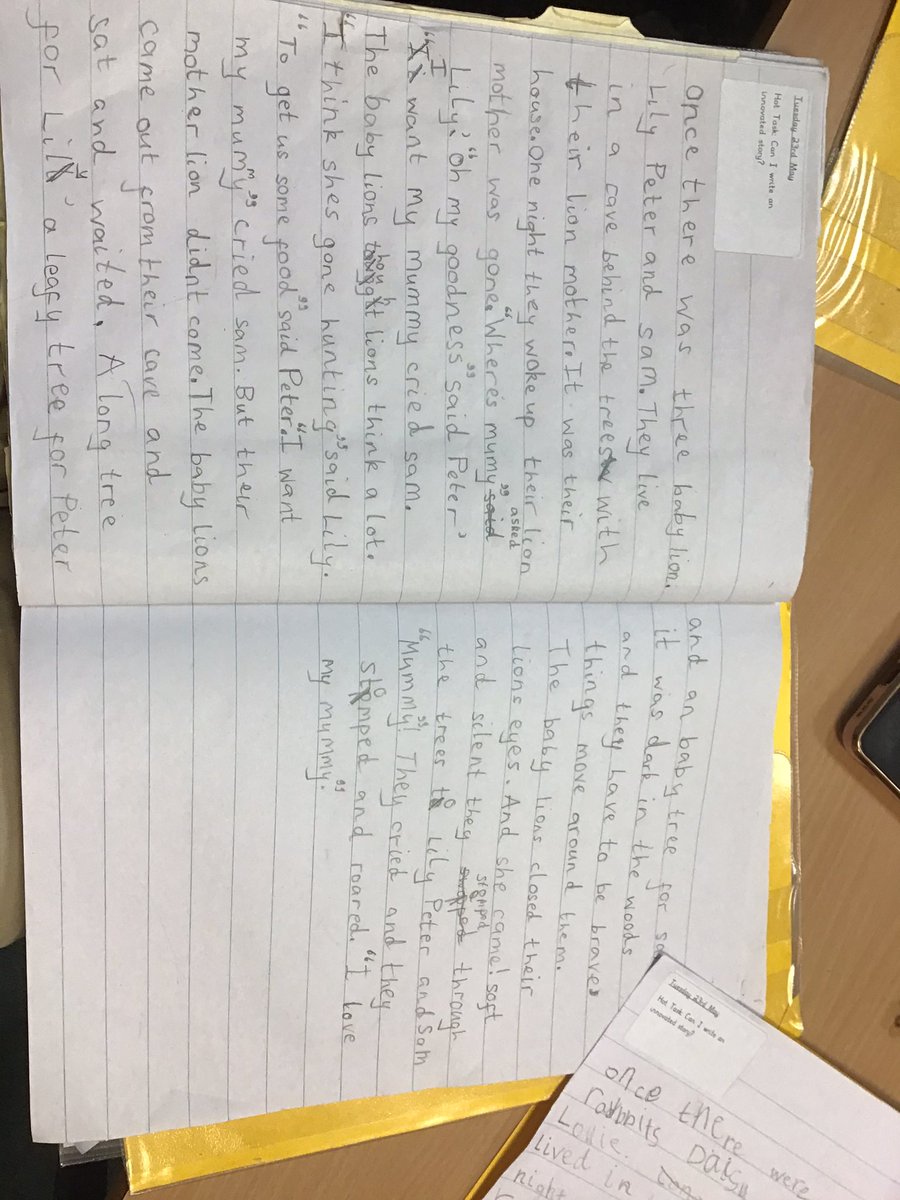 Tuesday 23rd May
Hot Task Can I write an
innovated story?
Once there was three baby lion.
Lily Peter and sam. They live
in a cave behind the trees with
their lion mother. It was their
house. One night they woke up their lion
mother was gone. "Where's mumy" said asked
Lily. "Oh my goodness" said Peter,
"I want my mummy cried sam.
The baby lions though lions think a lot.
"I think shes gone hunting" said Lily.
"To get us some food" said Peter. "I want
my mummy" cried sam. But their
mother lion didnt come. The baby lions
came out from their cave and
sat and waited. A long tree
for Lily, a leafy tree for Peter
and an baby tree for sa
it was dark in the woods
and they have to be brave.
things move around them.
The baby lions closed their
lions eyes. And she came! soft
and silent they stomped through
the trees to Lily Peter and Sam
"Mummy"! They cried and they
stomped and roared. "I love
my mummy."
Tuesday 23rd May
Hot Task Can I write an
innovated story?
once there were
rabbits Daisy
Lollie.
lived in
night